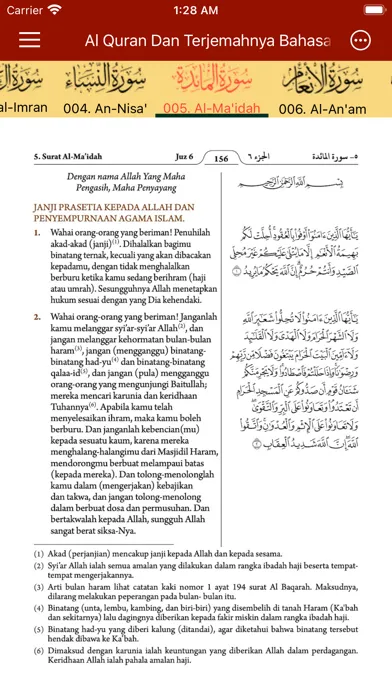 Carrier 1:28 AM
Al Quran Dan Terjemahnya Bahasa
سورة النساء سورة المائدة سورة الأنعام
al-Imran 004. An-Nisa' 005. Al-Ma'idah 006. Al-An'am
5. Surat Al-Ma'idah Juz 6 156 الجزء ٦ ٥- سورة المائدة
Dengan nama Allah Yang Maha
Pengasih, Maha Penyayang
JANJI PRASETIA KEPADA ALLAH DAN
PENYEMPURNAAN AGAMA ISLAM.
1. Wahai orang-orang yang beriman! Penuhilah
akad-akad (janji)(1). Dihalalkan bagimu
binatang ternak, kecuali yang akan dibacakan
kepadamu, dengan tidak menghalalkan
berburu ketika kamu sedang berihram (haji
atau umrah). Sesungguhnya Allah menetapkan
hukum sesuai dengan yang Dia kehendaki.
2. Wahai orang-orang yang beriman! Janganlah
kamu melanggar syi'ar-syi'ar Allah(2), dan
jangan melanggar kehormatan bulan-bulan
haram(3), jangan (mengganggu) binatang-
binatang had-yu(4) dan binatang-binatang
qalaa-id(5), dan jangan (pula) mengganggu
orang-orang yang mengunjungi Baitullah;
mereka mencari karunia dan keridhaan
Tuhannya(6). Apabila kamu telah
menyelesaikan ihram, maka kamu boleh
berburu. Dan janganlah kebencian(mu)
kepada sesuatu kaum, karena mereka
menghalang-halangimu dari Masjidil Haram,
mendorongmu berbuat melampaui batas
(kepada mereka). Dan tolong-menolonglah
kamu dalam (mengerjakan) kebajikan
dan takwa, dan jangan tolong-menolong
dalam berbuat dosa dan permusuhan. Dan
bertakwalah kepada Allah, sungguh Allah
sangat berat siksa-Nya.
بِسْمِ اللَّهِ الرَّحْمَٰنِ الرَّحِيمِ
يَٰٓأَيُّهَا الَّذِينَ ءَامَنُوٓا أَوْفُوا بِالْعُقُودِ أُحِلَّتْ لَكُم
بَهِيمَةُ الْأَنْعَٰمِ إِلَّا مَا يُتْلَىٰ عَلَيْكُمْ غَيْرَ مُحِلِّي
الصَّيْدِ وَأَنتُمْ حُرُمٌ إِنَّ اللَّهَ يَحْكُمُ مَا يُرِيدُ ١
يَٰٓأَيُّهَا الَّذِينَ ءَامَنُوا لَا تُحِلُّوا شَعَٰٓئِرَ اللَّهِ
وَلَا الشَّهْرَ الْحَرَامَ وَلَا الْهَدْيَ وَلَا الْقَلَٰٓئِدَ
وَلَآ ءَآمِّينَ الْبَيْتَ الْحَرَامَ يَبْتَغُونَ فَضْلًا مِّن رَّبِّهِمْ
وَرِضْوَٰنًا وَإِذَا حَلَلْتُمْ فَاصْطَادُوا وَلَا يَجْرِمَنَّكُمْ
شَنَـَٔانُ قَوْمٍ أَن صَدُّوكُمْ عَنِ الْمَسْجِدِ الْحَرَامِ
أَن تَعْتَدُوا وَتَعَاوَنُوا عَلَى الْبِرِّ وَالتَّقْوَىٰ
وَلَا تَعَاوَنُوا عَلَى الْإِثْمِ وَالْعُدْوَٰنِ وَاتَّقُوا
اللَّهَ إِنَّ اللَّهَ شَدِيدُ الْعِقَابِ ٢
(1) Akad (perjanjian) mencakup janji kepada Allah dan kepada sesama.
(2) Syi'ar Allah ialah semua amalan yang dilakukan dalam rangka ibadah haji beserta tempat-
tempat mengerjakannya.
(3) Arti bulan haram lihat catatan kaki nomor 1 ayat 194 surat Al Baqarah. Maksudnya,
dilarang melakukan peperangan pada bulan- bulan itu.
(4) Binatang (unta, lembu, kambing, dan biri-biri) yang disembelih di tanah Haram (Ka'bah
dan sekitarnya) lalu dagingnya diberikan kepada fakir miskin dalam rangka ibadah haji.
(5) Binatang had-yu yang diberi kalung (ditandai), agar diketahui bahwa binatang tersebut
hendak dibawa ke Ka'bah.
(6) Dimaksud dengan karunia ialah keuntungan yang diberikan Allah dalam perdagangan.
Keridhaan Allah ialah pahala amalan haji.